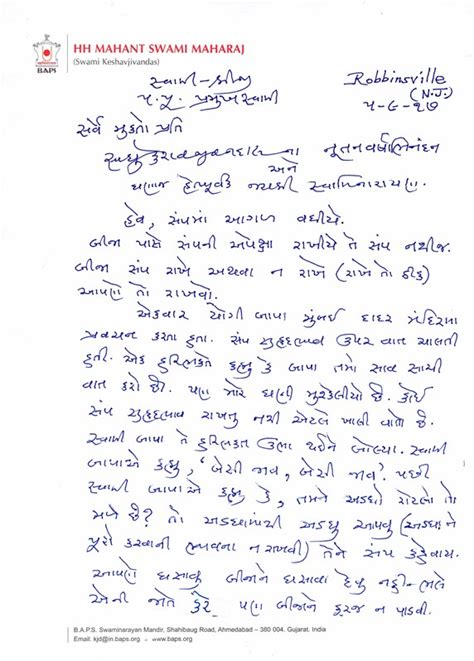 HH MAHANT SWAMI MAHARAJ
(Swami Keshavjivandas)
BAPS
સ્વામી-શ્રીજી
પ.પૂ. પ્રમુખસ્વામી
Robbinsville
(N.J.)
૫-૯-૧૭
સર્વે મુક્તો પ્રતિ
સાધુ કેશવજીવનદાસના નૂતનવર્ષાભિનંદન
અને
ઘણાજ હેતપૂર્વક જયશ્રી સ્વામિનારાયણ.
હવે, સંપમાં આગળ વધીયે.
બીજા પાસે સંપની અપેક્ષા રાખીયે તે સંપ નથીજ.
બીજા સંપ રાખે અથવા ન રાખે (રાખે તો ઠીક)
આપણે તો રાખવો.
એકવાર યોગી બાપા મુંબઈ દાદર મંદિરમાં
પ્રવચન કરતા હતા. સંપ સુહૃદભાવ ઉપર વાત ચાલતી
હતી. એક હરિભક્તે કહ્યું કે બાપા તમે સાવ સાચી
વાત કરો છો. પણ મોટે ઘણી મુશ્કેલીયો છે. કોઈ
સંપ સુહૃદભાવ રાખતું નથી એટલે ખાલી વાતો છે.
સ્વામી બાપા તે હરિભક્ત ઉભા થઈને બોલ્યા. સ્વામી
બાપાએ કહ્યું, 'બેસી જાવ, બેસી જાવ.' પછી
સ્વામી બાપાએ કહ્યું કે, તમને અડધો રોટલો તો
મળે છે? તો અડધામાંથી અડધું આપવું (અડધાને
પૂરો કરવાની ભાવના ન રાખવી) તેને સંપ કહેવાય.
આપણે ઘસાવું બીજાને ઘસાવા દેવું નહીં-ભલે
એની જાતે કરે. પણ બીજાને ફરજ ન પાડવી.
B.A.P.S. Swaminarayan Mandir, Shahibaug Road, Ahmedabad – 380 004. Gujarat. India
Email: kjd@in.baps.org • www.baps.org